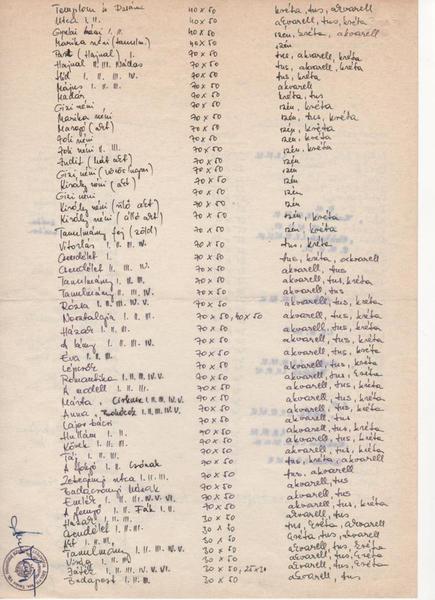 Templom és 40 x 50 kréta, tus, akvarell
Utca I. II. 40 x 50 akvarell, tus, kréta
Gyulai bácsi I. II. 40 x 50 szén, kréta, akvarell
Marika néni (tanulm.) 40 x 50 szén
Part (Hajnal) I. 70 x 50 tus, akvarell, kréta
Hajnal II. III. Nádas 70 x 50 akvarell, tus, kréta
Híd I. II. III. IV. 70 x 50 tus, kréta
Május I. II. III. 70 x 50 akvarell
Madár 70 x 50 kréta, tus
Gizi néni 70 x 50 szén, kréta
Marika néni 70 x 50 szén, tus, kréta
(akt) 70 x 50 szén, kréta
Joli néni 70 x 50 szén, kréta
Joli néni II. 70 x 50 szén, kréta
Judit (akt) 70 x 50 szén
Gizi néni 70 x 50 szén
Király néni (akt) 70 x 50 szén
Gizi néni 70 x 50 szén
Király néni (ülő akt) 70 x 50 szén, kréta
Király néni (álló akt) 70 x 50 szén, kréta
Tanulmány fej (zöld) 70 x 50 szén, kréta
Vitorlás I. II. III. IV. 70 x 50 tus, kréta
Csendélet I. 70 x 50 tus, kréta, akvarell
Csendélet II. III. IV. 70 x 50 akvarell, tus
Tanulmány I. II. III. 70 x 50 akvarell, tus, kréta
Tanulmány II. III. IV. 70 x 50 akvarell, tus
Rózsa I. II. III. IV. V. 70 x 50 akvarell, tus, kréta
Nosztalgia I. II. III. 70 x 50, 40 x 50 akvarell, tus, kréta
Házak I. II. III. 70 x 50 akvarell, tus, kréta
A lány I. II. III. 70 x 50 akvarell, tus, kréta
Éva I. II. III. 70 x 50 akvarell, tus, kréta
Lépcsők 70 x 50 akvarell, tus
Romantika I. II. III. IV. V. 70 x 50 akvarell, tus, kréta
A modell I. II. III. 70 x 50 akvarell, tus
Márta, I. II. III. IV. V. 70 x 50 akvarell, tus, kréta
Anna, I. II. III. IV. V. 70 x 50 akvarell, tus, kréta
Lajos bácsi 70 x 50 akvarell, tus, kréta
Hullám I. II. 70 x 50 akvarell, tus, kréta
Kövek I. II. III. 70 x 50 akvarell, tus
Táj I. II. 70 x 50 akvarell, tus, kréta
A I. Csónak 70 x 50 tus, kréta, akvarell
Zebegényi utca I. II. III. 70 x 50 tus, akvarell
Badacsonyi 70 x 50 akvarell, tus
Emlék I. II. III. IV. V. VI. 70 x 50 akvarell, tus
A fenyő, Fák I. II. 70 x 50 akvarell, tus, kréta
Házak I. II. III. 30 x 50 akvarell, tus
Csendélet I. II. III. 30 x 50 tus, kréta, akvarell
Akt I. II. III. 30 x 50 kréta, tus, akvarell
Tanulmány I. II. III. IV. V. 30 x 50 akvarell, tus, kréta
Virág I. II. III. 30 x 50 akvarell, tus, kréta
I. II. III. IV. V. VI. 30 x 50, 25 x 30 akvarell, tus, kréta
Budapest I. II. III. 30 x 50 akvarell, tus